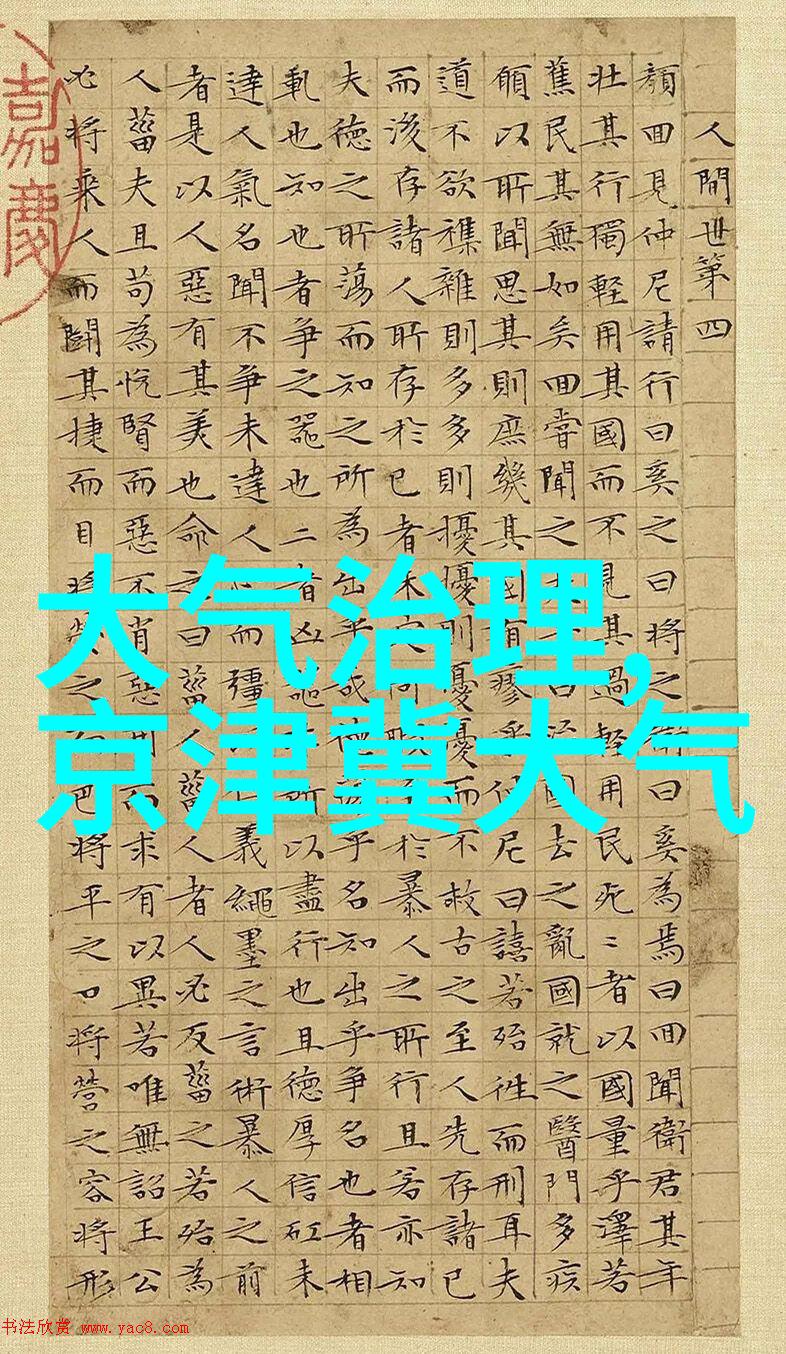 人間世第四
顏回見仲尼請行曰奚之曰將之衛曰奚為焉曰回聞衛君其年
壯其行獨輕用其國而不見其過輕用民死〻者以國量乎澤若
蕉民其無如矣回嘗聞之曰國去之亂國就之醫門多疾
願以所聞思其則庶幾其國有瘳乎仲尼曰譆若殆往而刑耳夫
道不欲襍雜則多多則擾擾則憂憂而不救古之至人先存諸已
而後存諸人所存於已者未定何暇於暴人之所行且若亦知
夫德之所蕩而知之所為出乎或德蕩乎名知出乎爭名也者相
軋也知也者爭之器也二者凶器所以盡行也且德厚信矼未
達人氣名聞不爭未達人而彊仁義繩墨之言術暴人之前
者是以人惡有其美也命之曰菑人菑人者人必反菑之若殆為
人菑夫且苟為悅賢而惡不肖惡用而求有以異若唯無詔王公
必將乘人而鬭其捷而目將熒之而色將平之口將營之容將形
嘉慶
大气治理,
京津冀大气
书法欣赏 www.yac8.com